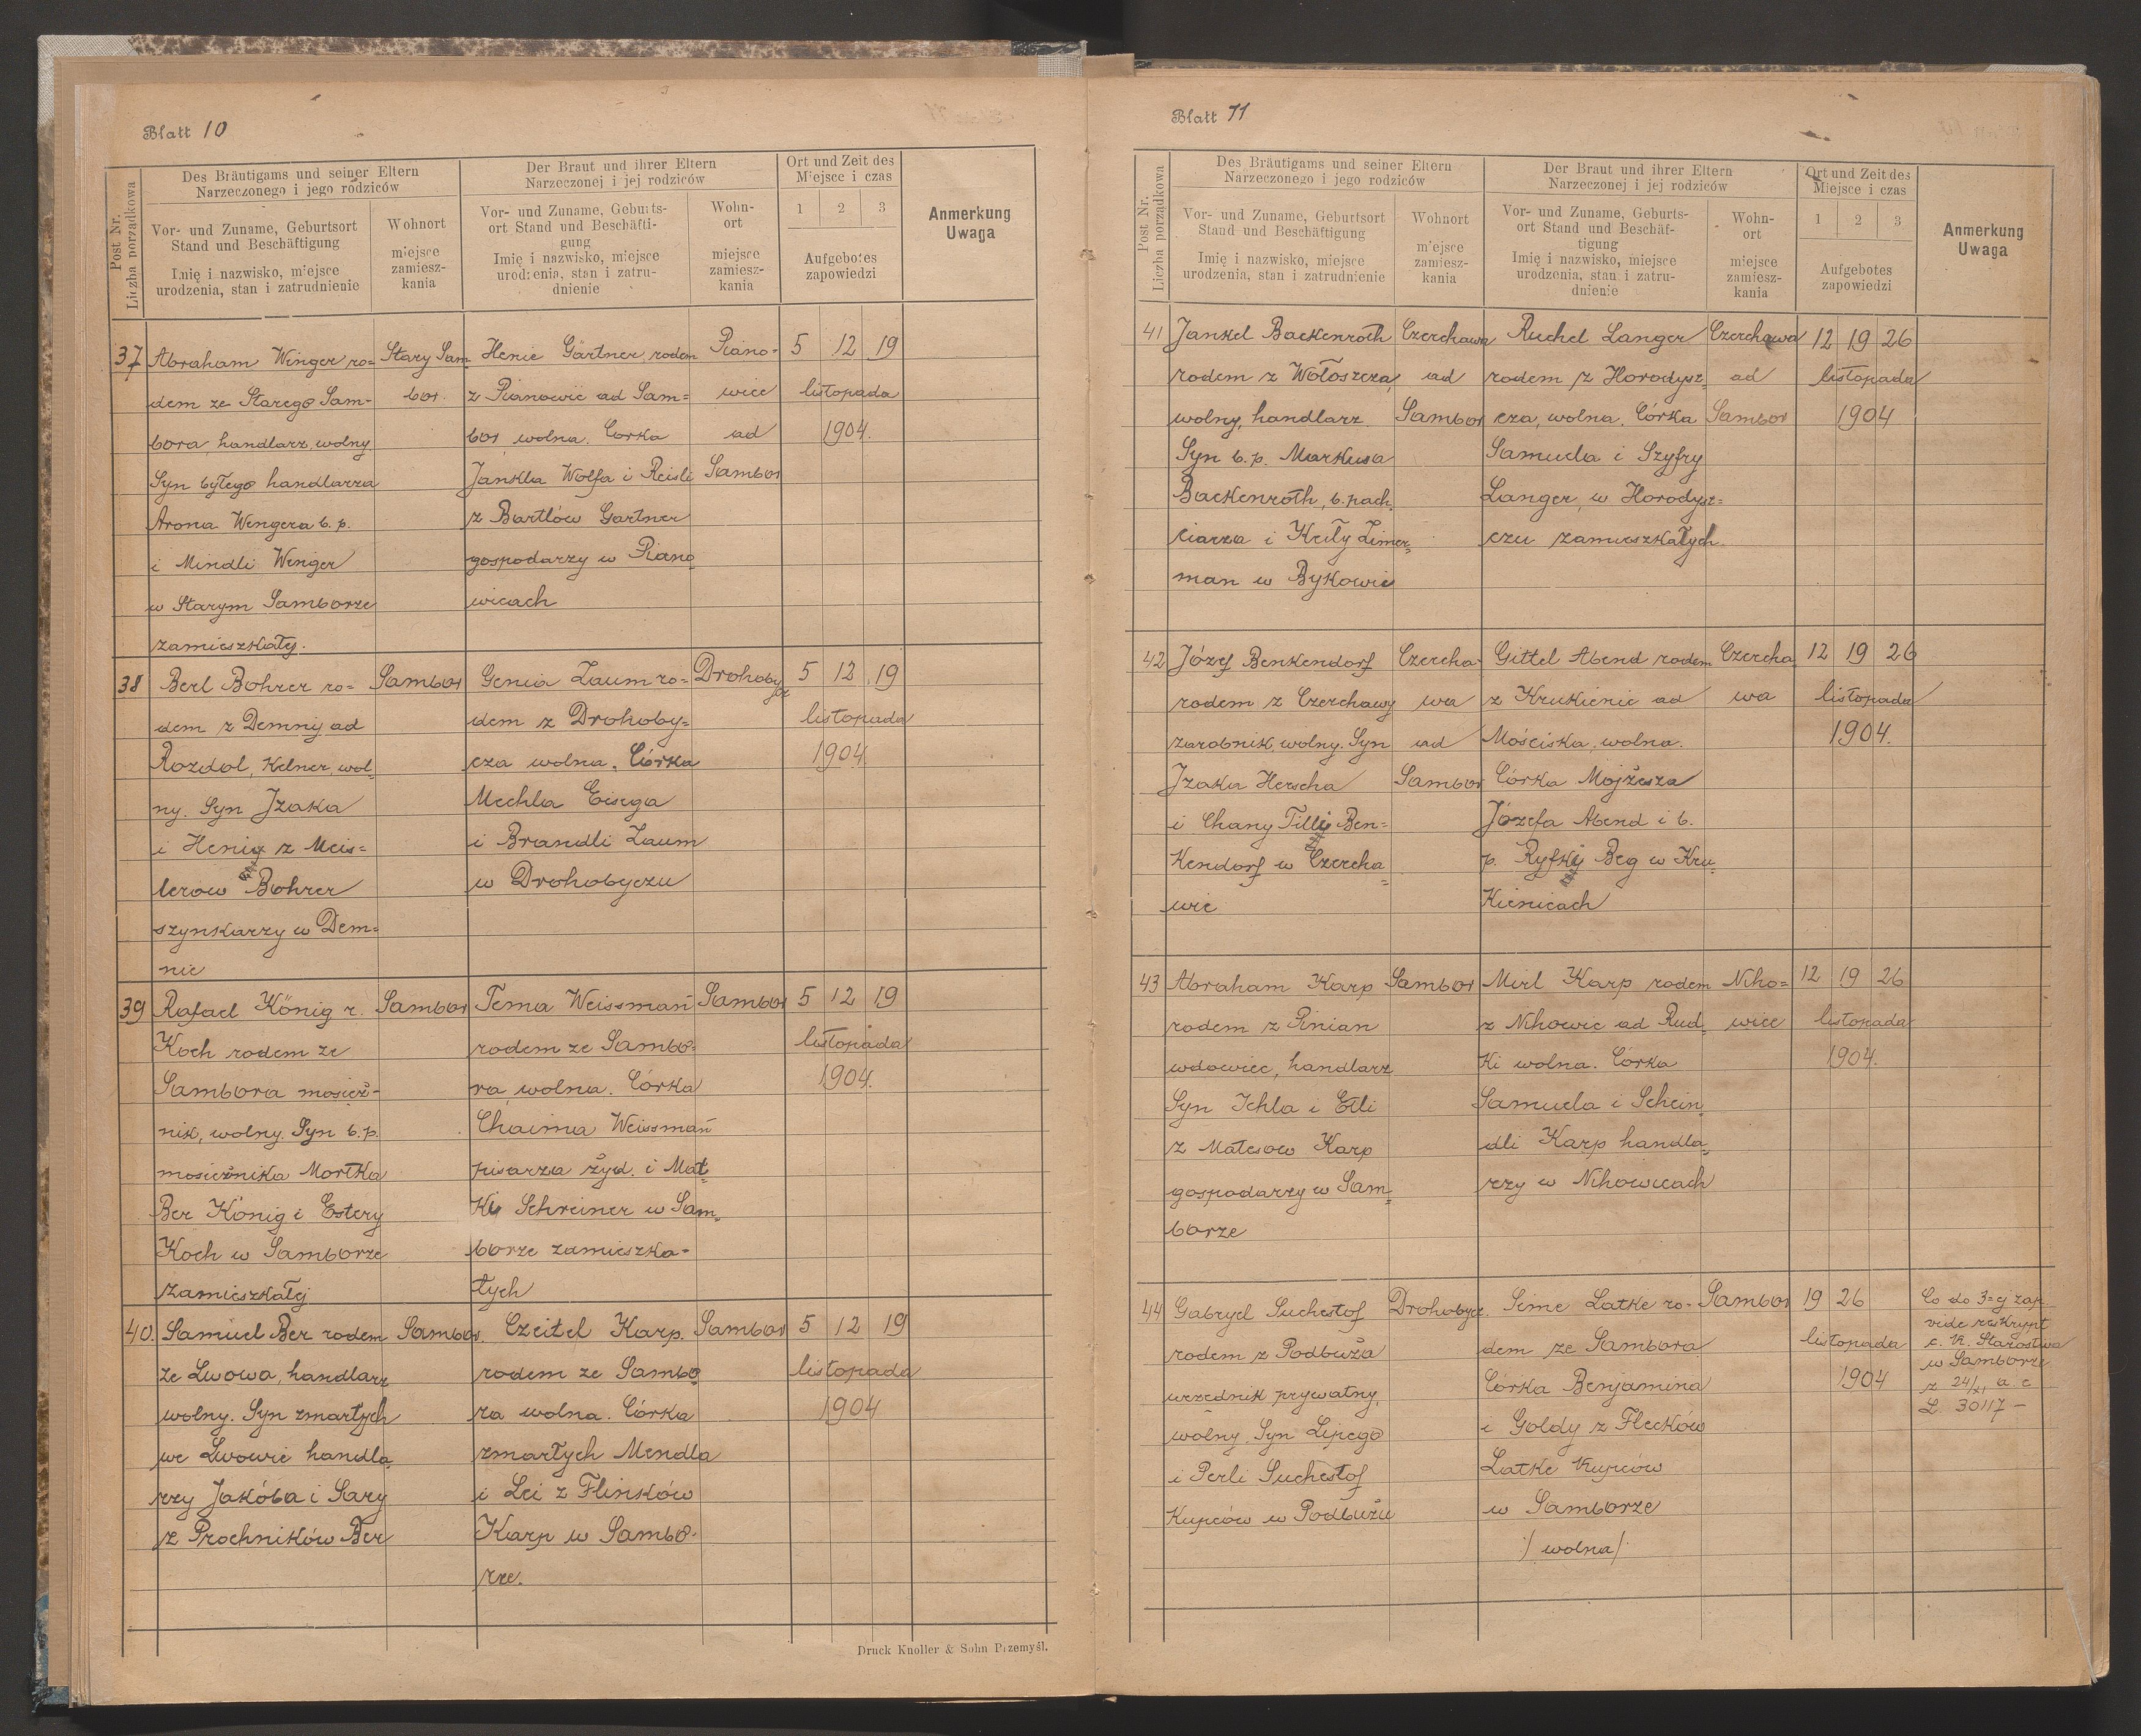 Blatt 10
Des Bräutigams und seiner Eltern
Narzeczonego i jego rodziców
Der Braut und ihrer Eltern
Narzeczonej i jej rodziców
Ort und Zeit des
Miejsce i czas
Anmerkung
Uwaga
Post Nr.
Liczba porządkowa
Vor- und Zuname, Geburtsort
Stand und Beschäftigung
Imię i nazwisko, miejsce
urodzenia, stan i zatrudnienie
Wohnort
miejsce
zamiesz-
kania
Vor- und Zuname, Geburts-
ort Stand und Beschäfti-
gung
Imię i nazwisko, miejsce
urodzenia, stan i zatru-
dnienie
Wohn-
ort
miejsce
zamiesz-
kania
1 2 3
Aufgebotes
zapowiedzi
37
Abraham Winger ro-
dem ze Starego Sam-
bora, handlarz, wolny
Syn byłego handlarza
Arona Wengera b. p.
i Mindli Wenger
w Starym Samborze
zamieszkałej.
Stary Sam-
bor.
Henie Gärtner, rodem
z Pianowic ad Sam=
bor, wolna. Corka
Jankla Wolfa i Reisli
z Bartlów Gartner
gospodarzy w Piano
wicach
Piano-
wice
ad
Sambor
5 12 19
listopada
1904.
38
Berl Bohrer ro=
dem z Demnij ad
Rozdol, Kelner, wol
ny. Syn Jzaka
i Henie z Meis=
lerow Bohrer
szynkarzy w Dem=
nie
Sambor
Genia Zaum ro=
dem z Drohoby=
cza wolna. Córka
Mechla Eisega
i Brandli Zaum
w Drohobyczu
Drohoby
cz
5 12 19
listopada
1904.
39
Rafael König r.
Koch rodem ze
Sambora mosież-
nik, wolny. Syn b. p.
mosieżnika Mortka
Ber König i Estery
Koch w Samborze
zamieszkałej
Sambor
Tema Weissmań
rodem ze Sambo-
ra, wolna. Córka
Chaima Weissmań
pisarza żyd. i Mat
Ki Schreiner w Sam
borze zamieszka-
łych
Sambor
5 12 19
listopada
1904.
40.
Samuel Ber rodem
ze Lwowa, handlarz
wolny. Syn zmarłych
we Lwowie handla
rzy Jakóba i Sary
z Prochników Ber
Sambor.
Czeitel Karp.
rodem ze Sambo
ra wolna. Córka
zmarłych Mendla
i Lei z Flinków
Karp w Sambo-
rze.
Sambor
5 12 19
listopada
1904
Druck Knoller & Sohn Przemyśl.
Blatt 11
Des Bräutigams und seiner Eltern
Narzeczonego i jego rodziców
Der Braut und ihrer Eltern
Narzeczonej i jej rodziców
Ort und Zeit des
Miejsce i czas
Anmerkung
Uwaga
Post Nr.
Liczba porządkowa
Vor- und Zuname, Geburtsort
Stand und Beschäftigung
Imię i nazwisko, miejsce
urodzenia, stan i zatrudnienie
Wohnort
miejsce
zamiesz-
kania
Vor- und Zuname, Geburts-
ort Stand und Beschäf-
tigung
Imię i nazwisko, miejsce
urodzenia, stan i zatru-
dnienie
Wohn-
ort
miejsce
zamiesz-
kania
1 2 3
Aufgebotes
zapowiedzi
41
Jankel Backenroth
rodem z Wołoszcza
wolny, handlarz.
Syn b. p. Markusa
Backenroth, b. pach
ciarza i Keily Zimer
man w Bykowie
Czerchawa
ad
Sambor
Ruchel Langer
rodem z Horodysz
cza, wolna. Córka
Samuela i Szyfry
Langer, w Horodysz=
czu zamieszkałych.
Czerchawa
ad
Sambor
12 19 26
listopada
1904
42
Józef Benkendorf
rodem z Czerchawy
zarobnik, wolny. Syn
Jzaka Herscha
i Chany Tilli Ben=
Kendorf w Czercha
wie
Czercha-
wa
ad
Sambor
Gittel Abend rodem
z Krukienic ad
Mościska, wolna.
Córka Mojżesza
Józefa Abend i b.
p. Ryfki Beg w Kru
Kienicach
Czercha
wa
12 19 26
listopada
1904.
43
Abraham Karp
rodem z Pinian
wdowiec, handlarz
Syn Ichla i Elli
z Matesow Karp
gospodarzy w Sam
borze
Sambor
Mirl Karp rodem
z Nihowic ad Rud
Ki wolna. Córka
Samuela i Schein
dli Karp handla
rzy w Nihowicach
Niho=
wice
12 19 26
listopada
1904.
44
Gabryel Suchestof
rodem z Podbuża
urzednik prywatny,
wolny. Syn Lipego
i Perli Suchestof
Kupców w Podbużu
Drohobycz.
Sime Latke ro-
dem ze Sambora
Córka Benjamina
i Goldy z Flecków
Latke Kupców
w Samborze
/ wolna /
Sambor
19 26
listopada
1904
Co do 3=ej zap.
vide reskrypt
c. K. Starostwa
w Samborze
z 24/XI a. c
L. 30117 —